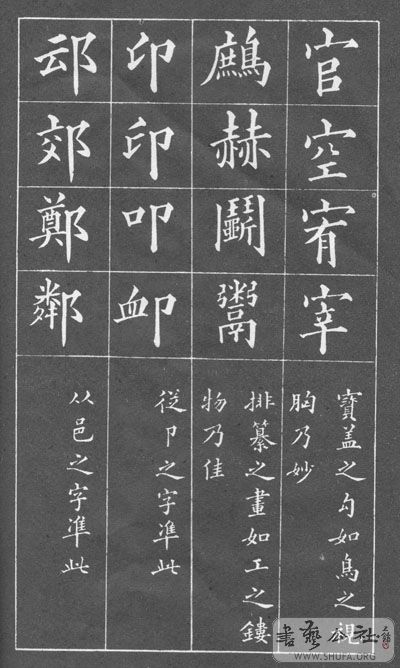 官
空
宥
宰
寶盖之勾如鳥之視
胸乃妙
赫
鬭
鬻
排纂之畫如工之鏤
物乃佳
印
印
叩
卹
從卩之字準此
䢵
郊
鄭
鄰
从邑之字準此
書藝公社
WWW.SHUFA.ORG